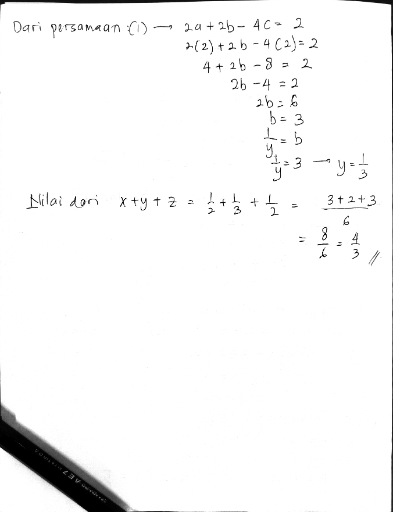 Dari persamaan (1) → 2a + 2b - 4c = 2
2(2) + 2b - 4(2) = 2
4 + 2b - 8 = 2
2b - 4 = 2
2b = 6
b = 3
1/y = b
1/y = 3 → y = 1/3
Nilai dari x + y + z = 1/2 + 1/3 + 1/2 = (3+2+3)/6
= 8/6 = 4/3 //